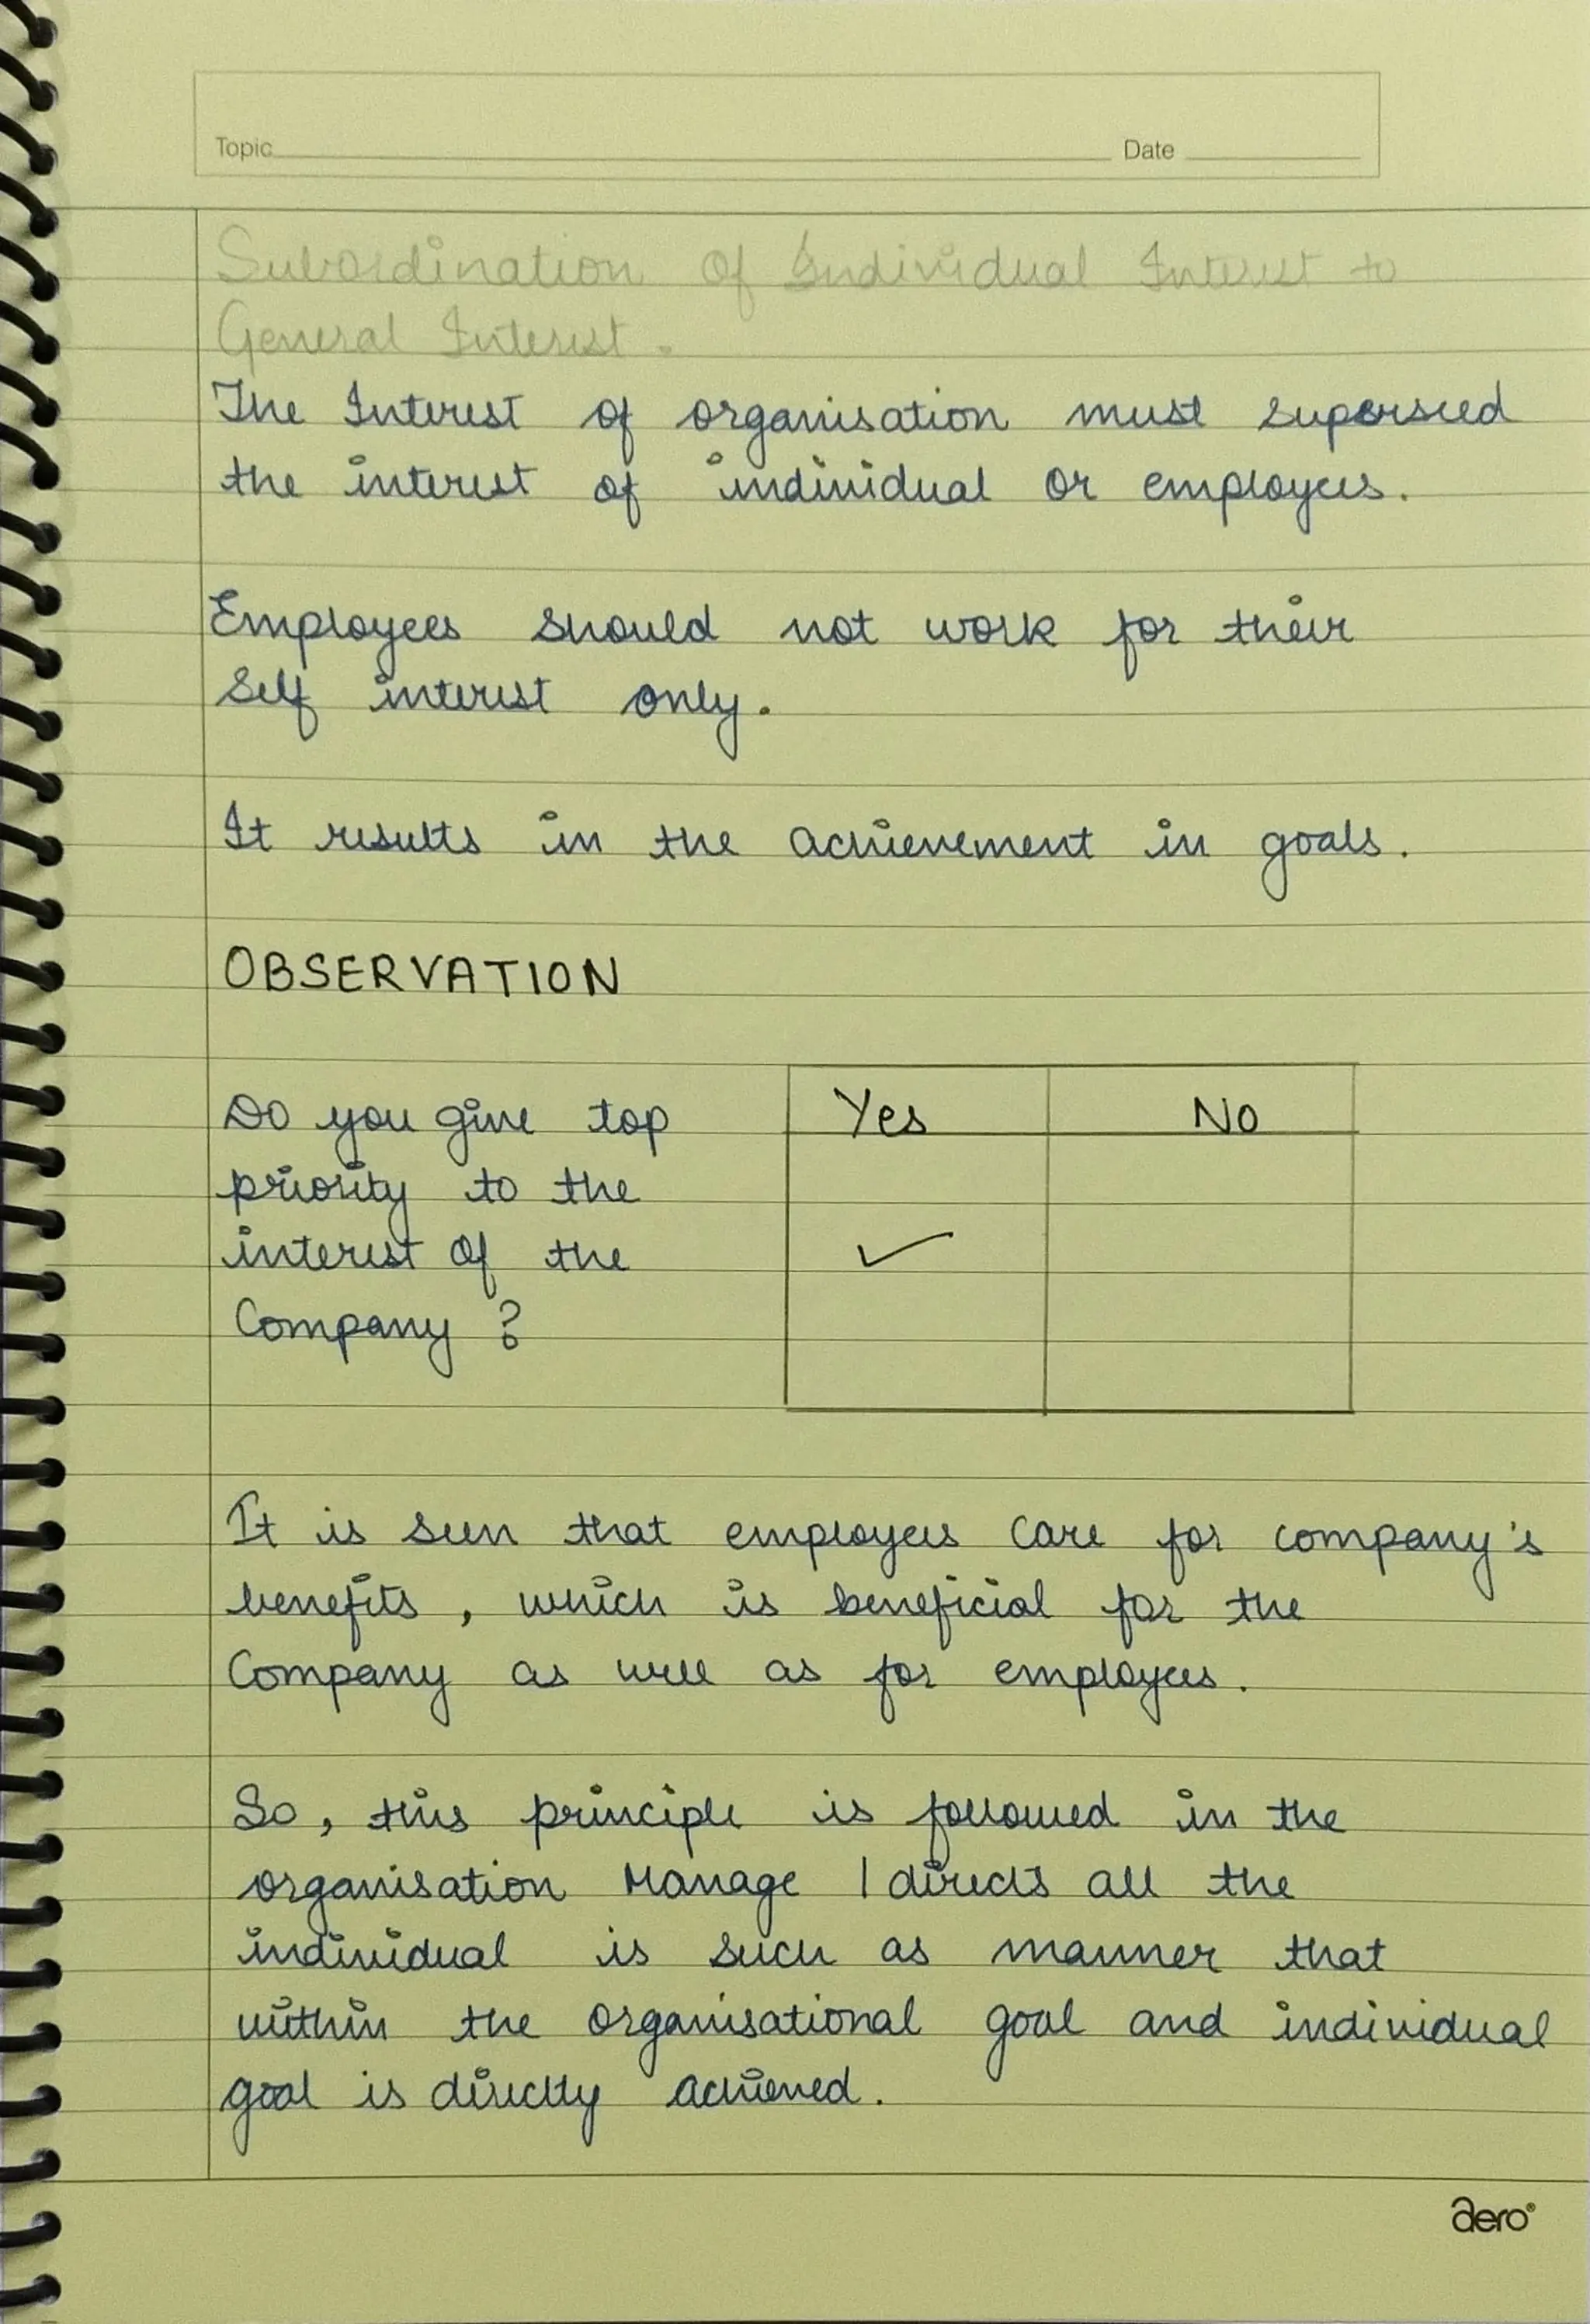 Topic Date
Subordination Of Individual Interest to
General Interest.
The Interest of organisation must superseed
the interest of individual or employees.
Employees should not work for their
Self interest only.
It results in the achievement in goals.
OBSERVATION
Do you give top Yes No
priority to the
interest of the ✓
Company ?
It is seen that employees care for company's
benefits, which is beneficial for the
Company as well as for employees.
So, this principle is followed in the
organisation Manage / directs all the
individual is such as manner that
within the organisational goal and individual
goal is directly achieved.
aero®